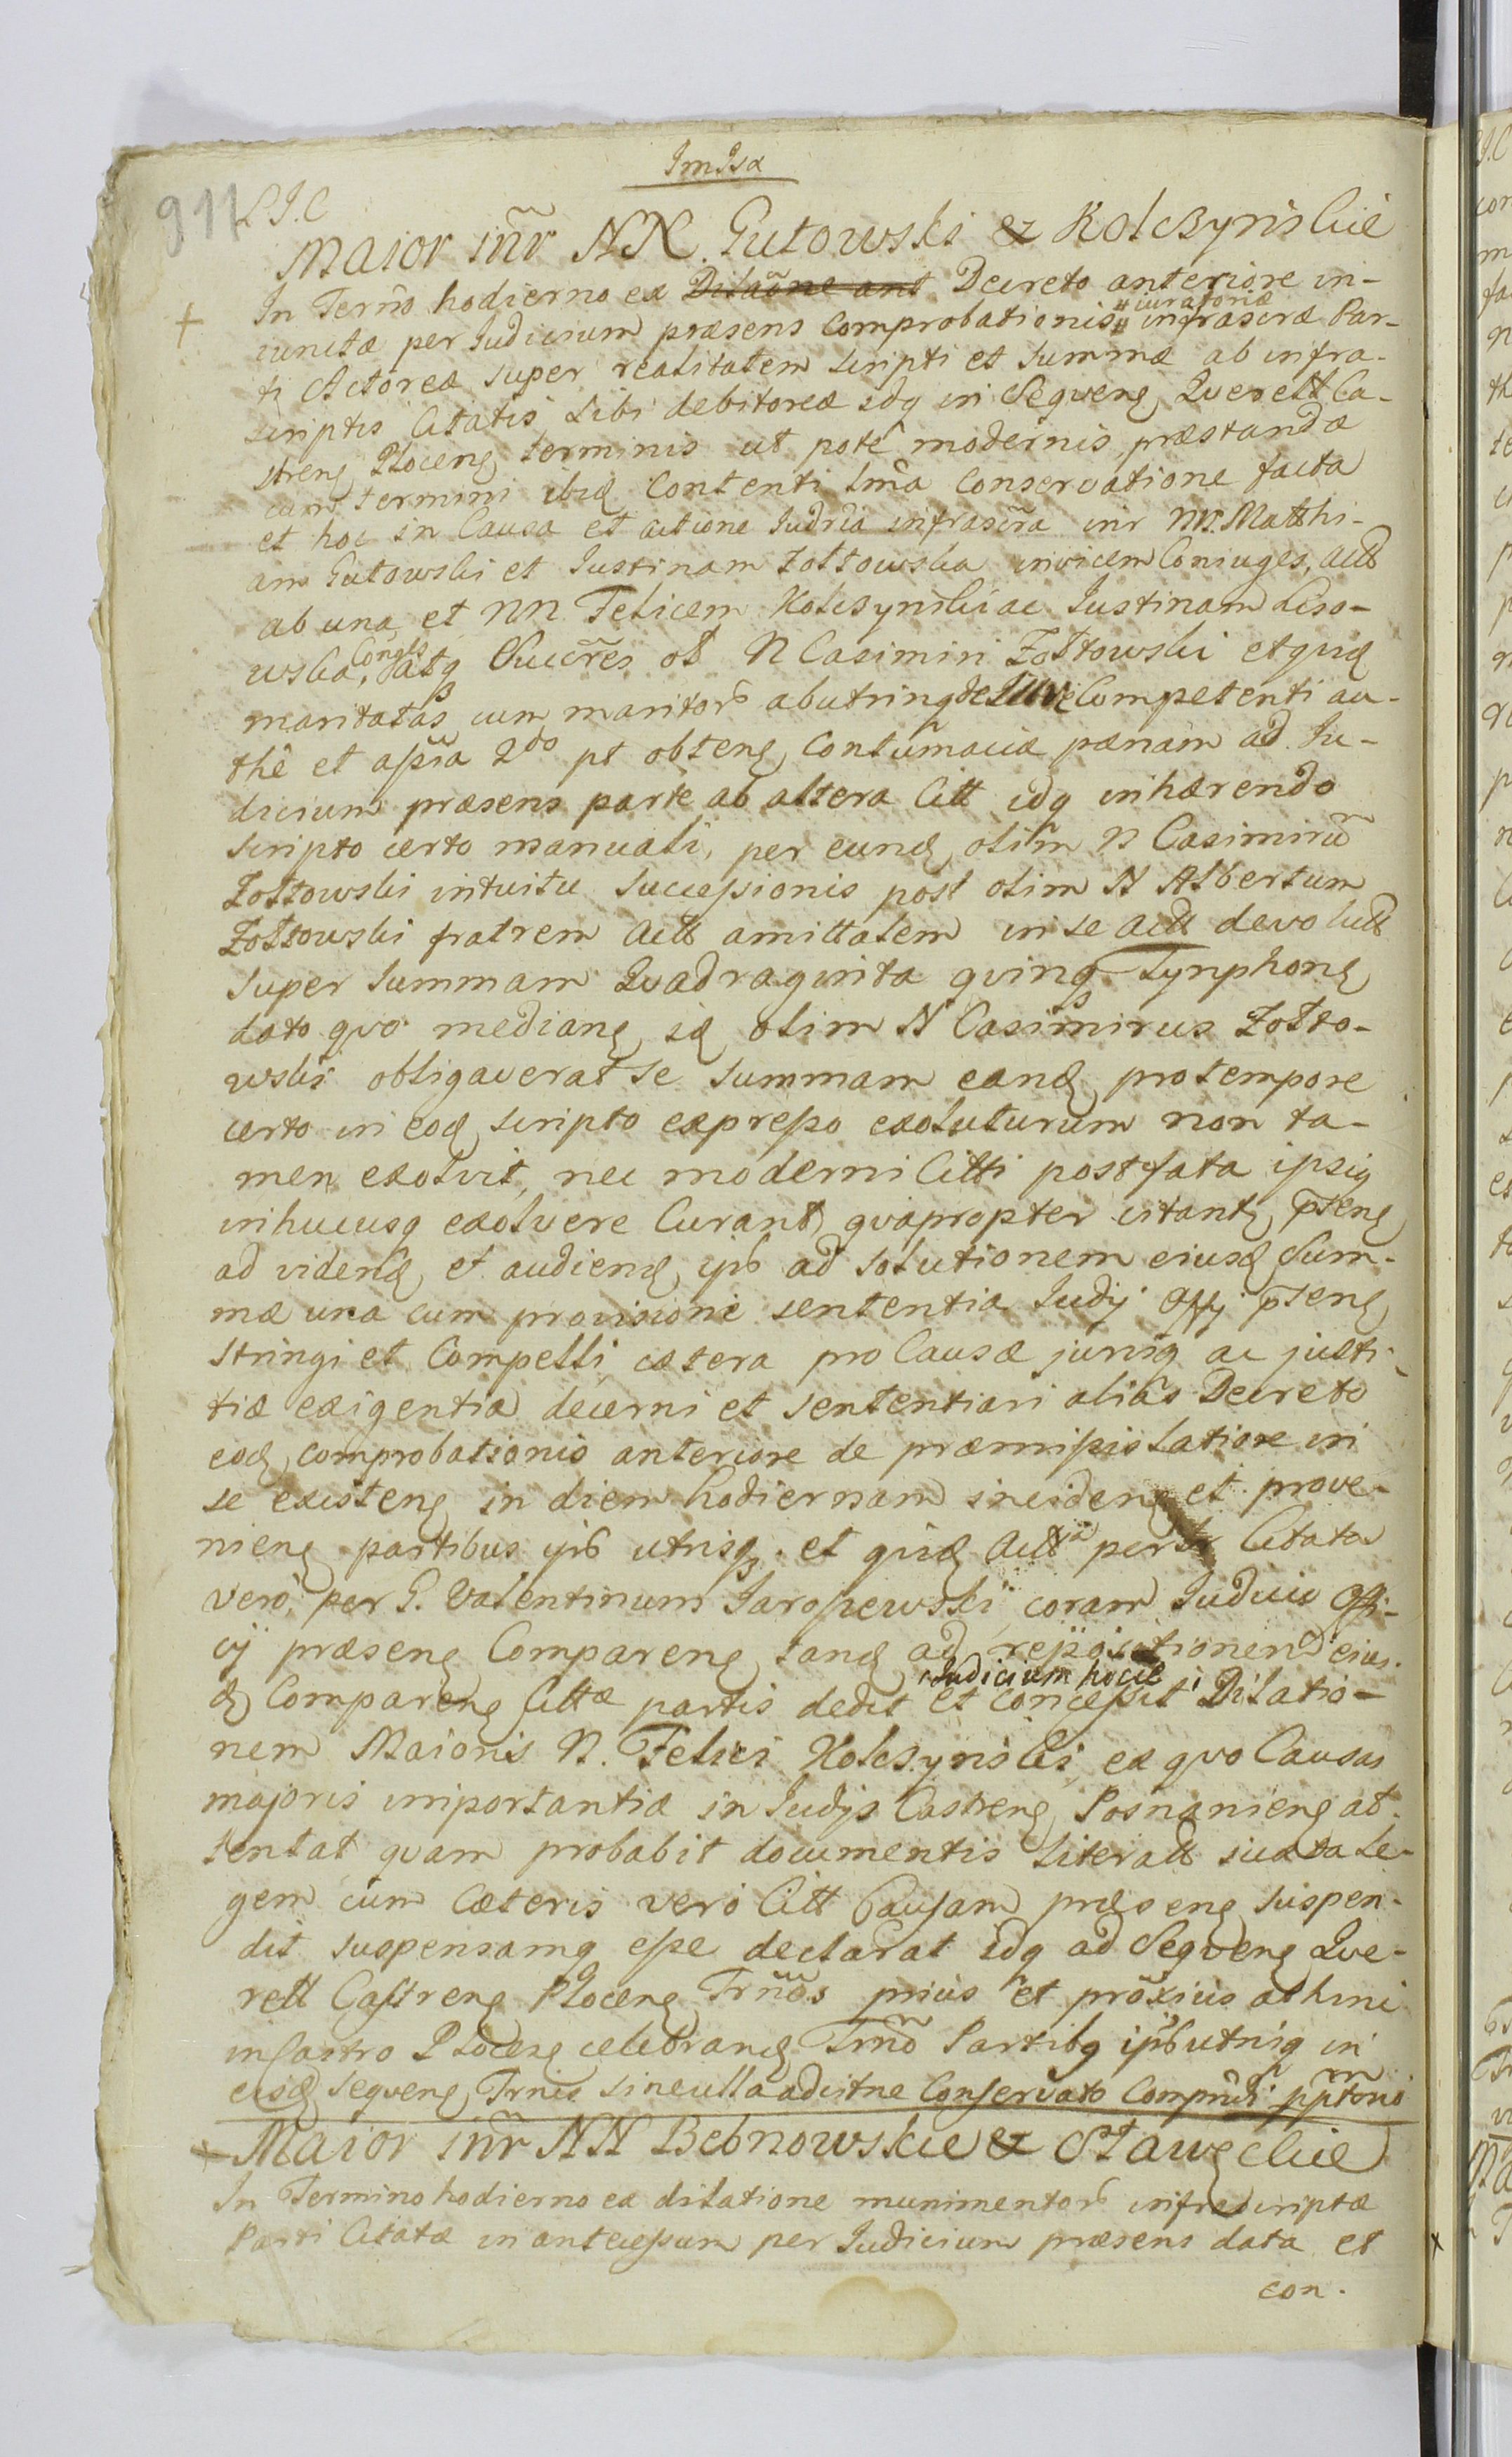 ImIsa
911
L I. C
Maior inr̃ NN. Gutowski & Kolczynskie
In Term̃o hodierno ex Dilaõne ant Decreto anteriore in-
iunctæ per Judicium præsens comprobationis # iuratoriæ infrascræ Par-
ti Actoreæ super realitatem scripti et summæ ab infra-
scriptis Citatis sibi debitoreæ idq in Seqveng Querell Ca-
streng Ploceng terminis ut pote modernis, præstandæ
cum termini ibid Contenti Lma Conservatione facta
et hoc in Causa et actione Judria infrascra inr NN. Matthi-
am Gutowski et Justinam Zołtowska invicem Coniuges, actt
ab una et NN Felicem Kolczynski ac Justinam Liso-
wska, Congs, atq Succr̃es ol N Casimiri Zołtowski et quæ
maritatas cum maritor abutrinq de Jure Competenti au-
thê et assia 2do pt obteng Contumaciæ pænam ad Ju-
dicium præsens parte ab altera Citt idq inhærendo
scripto certo manuali, per eund olim N Casimirũ
Zołtowski intuitu successionis post olim N Albertum
Zołtowski fratrem actt amittalem in se actt devolutt
super summam Quadraginta qvinq Tynphong
dato qvo mediang id olim N Casimirus Zołto-
wski obligaverat se summam eand pro tempore
certo in eod scripto expresso exoluturum non ta-
men exolvit, nec moderni Citti post fata ipsiq
inhucusq exolvere Curant qvapropter citantr pteng
ad videnđ et audienđ ipš ad solutionem eiusđ Sum-
mæ una cum provisione sententia Judÿ Offÿ pteng
stringi et Compelli, cætera pro Causæ jurisq ac justi-
tiæ exigentia decerni et sententiari alias Decreto
eođ comprobationis anteriore de præmissis latiore in
se existeng in diem hodiernam incideng et prove-
nieng partibus ipš utrisq. et quid Actta per se Citata
vero per G. Valentinum Jaroszewski coram Judicio Offi-
cÿ præseng Compareng tand ad repositionem eius-
đ Compareng Cittæ partis dedit et concessit Judicium hocce Dilatio-
nem Maioris N. Felici Kolczynski ex qvo Causas
majoris importantiæ in Judÿs Castreng Posnanieng at-
tentat qvam probabit documentis literatt iuxta Le-
gem cum Cæteris vero Citt Causam præseng suspen-
dit suspensamq esse declarat idq ad Seqveng Qve-
rell Castreng Ploceng Trños prius et proxius ab hinc
in Castro Ploceng celebranđ Trño Partibq ipš utriq in
eisđ seqveng Trnis sine ulla adcitne Conservato Comprñdi pptorio
Maior inr̃ NN Bebnowskie & Sławęckie
In Termino hodierno ex dilatione munimentor infrascriptæ
Parti Citatæ in antecessum per Judicium præsens data et
con-